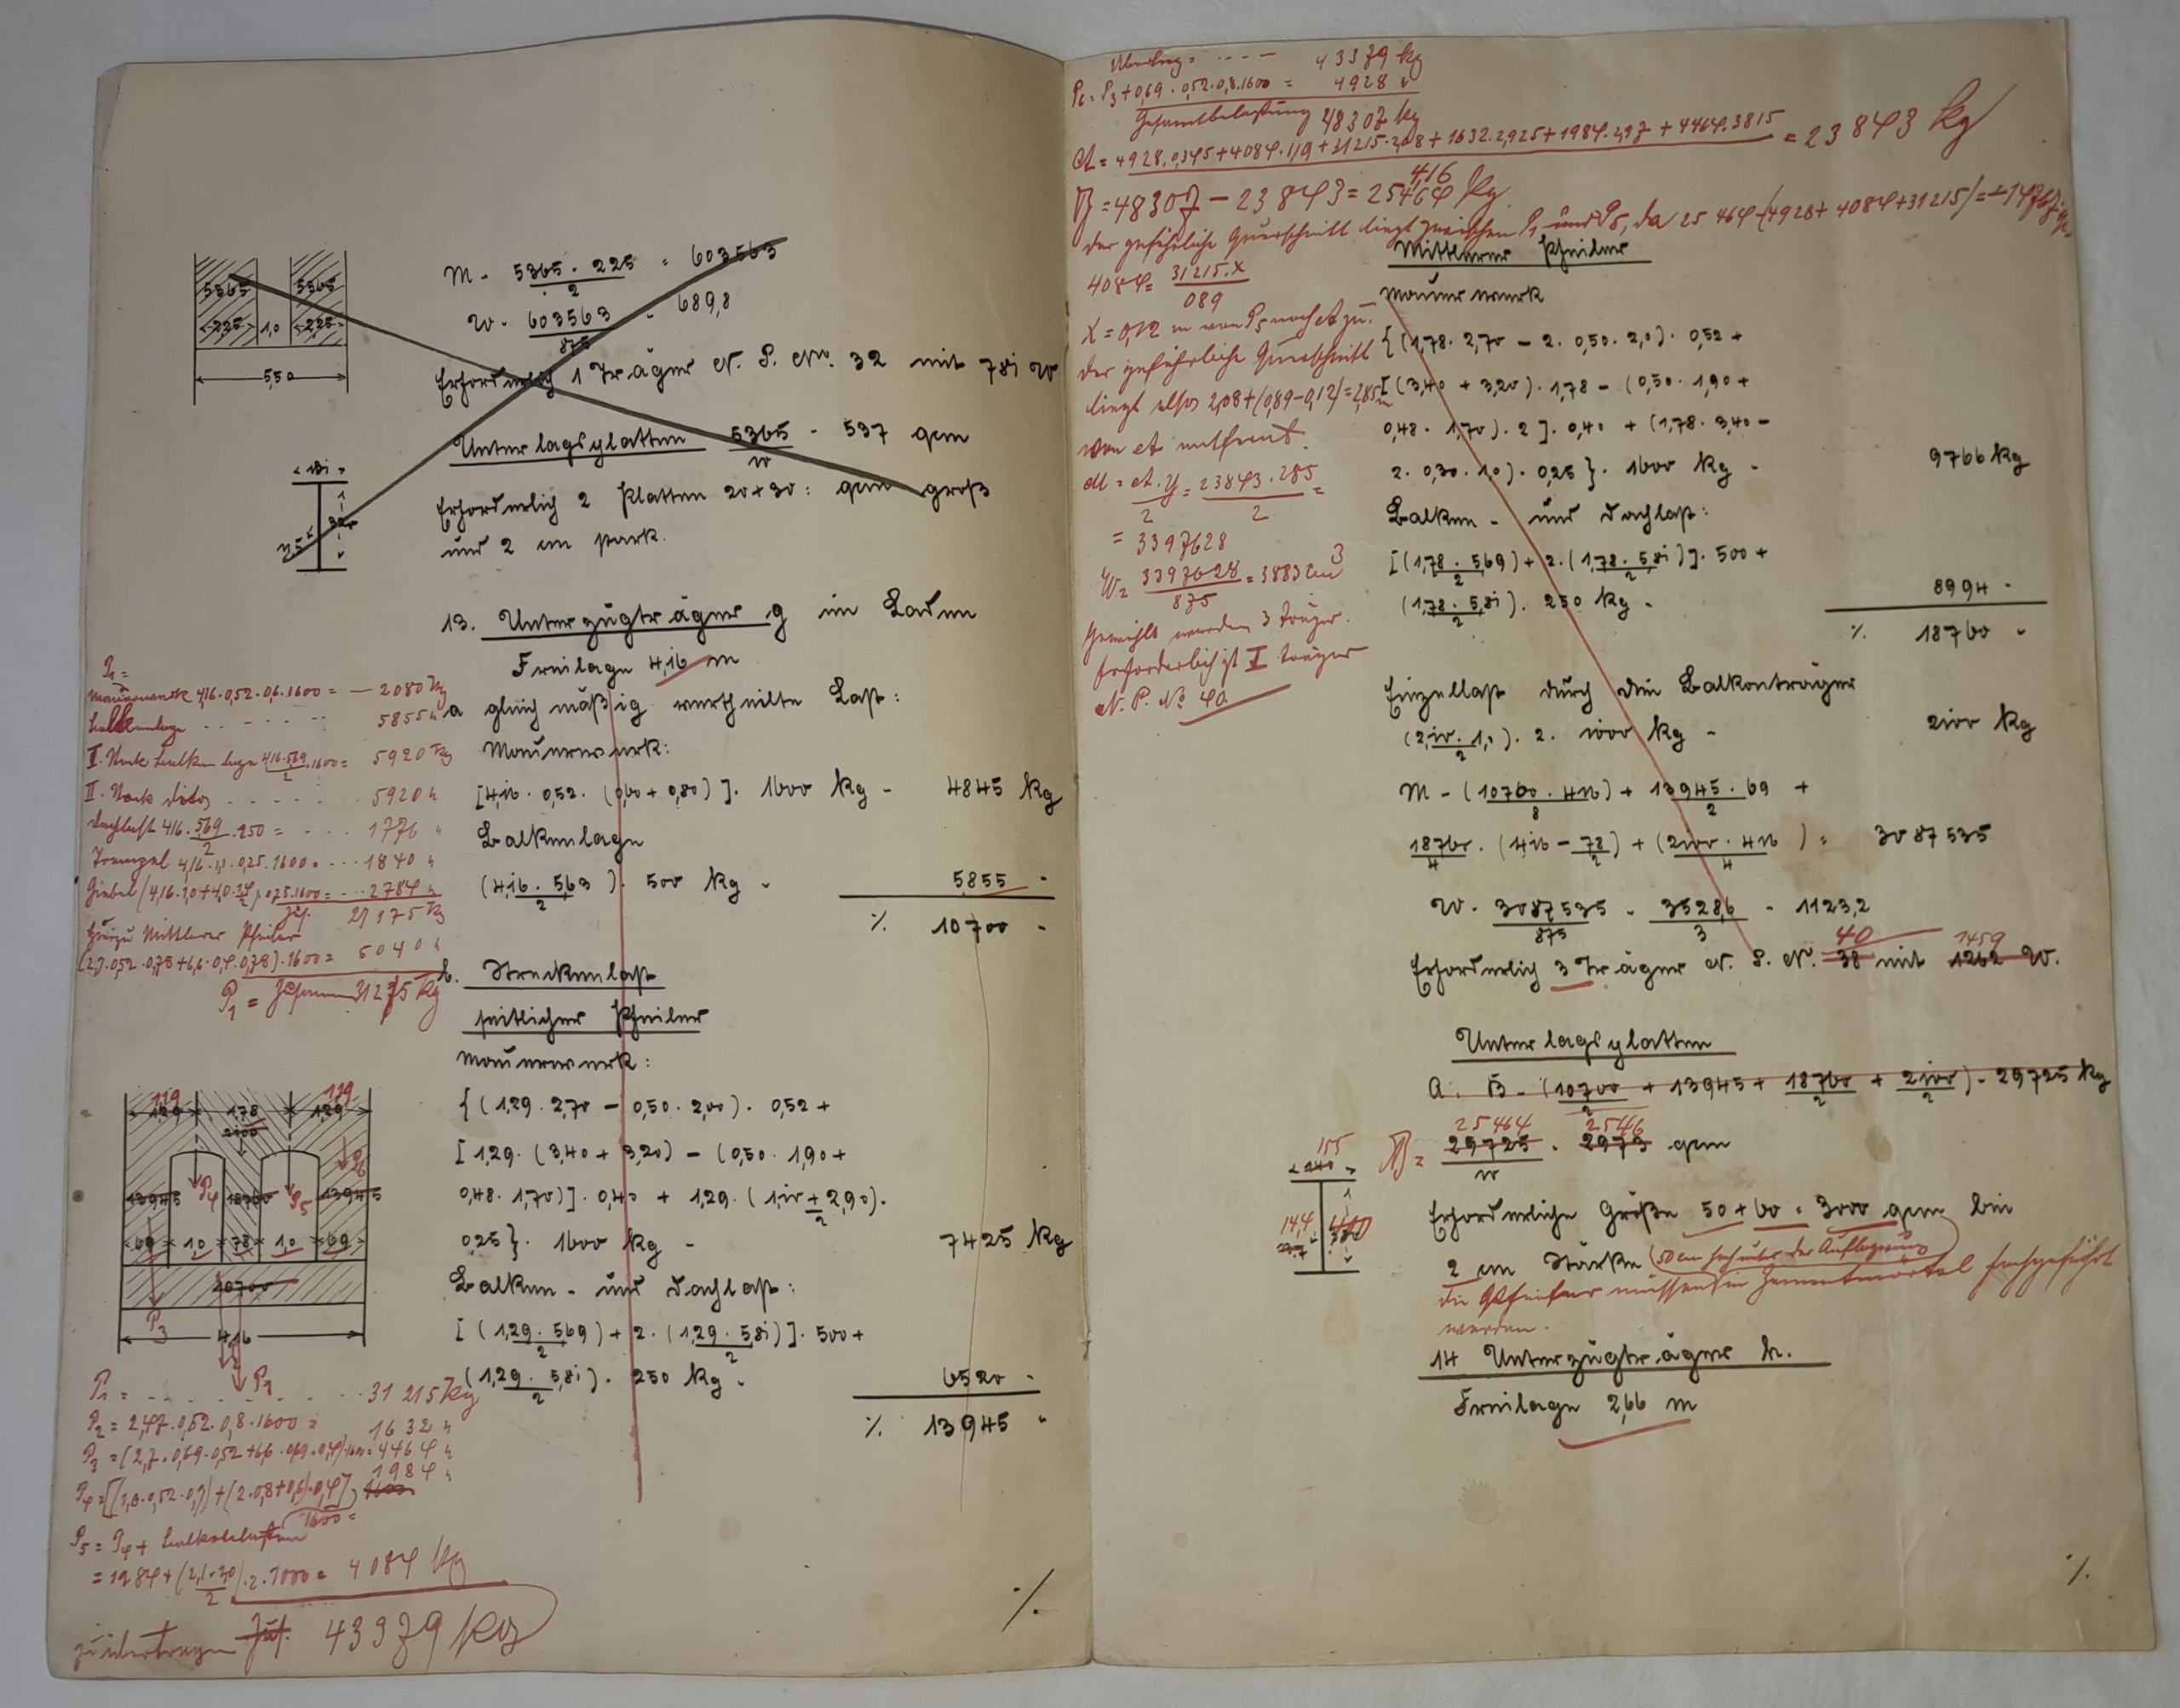 5365 5365
225 1,0 225
5,50
M = 5365 · 225 / 2 = 603563
W = 603563 / 875 = 689,8
Erforderlich 1 Träger N. P. No. 32 mit 781 W
Unterlagsplatten 5365 / 10 = 537 qcm
Erforderlich 2 Platten 20 + 30 = qcm groß
und 2 cm stark.
13. Unterzugträger g im Laden
Freilage 4,16 m
a gleichmäßig verteilte Last:
Mauerwerk:
[4,16 · 0,52 · (0,60 + 0,80)] · 1600 kg = 4845 kg
Balkenlage
(4,16 · 5,63 / 2) · 500 kg = 5855 "
% 10700 "
b. Streckenlast
seitlicher Pfeiler
Mauerwerk:
{(1,29 · 2,70 − 0,50 · 2,00) · 0,52 +
[1,29 · (3,40 + 3,20) − (0,50 · 1,90 +
0,48 · 1,70)] · 0,40 + 1,29 · (1,10 + 2,90 / 2) ·
0,25} · 1600 kg = 7425 kg
Balken- und Dachlast:
[(1,29 · 5,69 / 2) + 2 · (1,29 · 5,81 / 2)] · 500 +
(1,29 · 5,81 / 2) · 250 kg = 6520 "
% 13945 "
%
P1 =
Mauerwerk 4,16 · 0,52 · 0,6 · 1600 = 2080 kg
Balkenlage 5855 "
I. Stock Balkenlage 4,16 · 5,69 / 2 · 1600 = 5920 kg
II. Stock ditos 5920 "
Dachlast 4,16 · 5,69 / 2 · 250 = 1776 "
Trempel 4,16 · 1,1 · 0,25 · 1600 = 1840 "
Giebel 2784 "
Zus. 27175 kg
Hierzu Mittlerer Pfeiler
(2,7 · 0,52 · 0,78 + 6,6 · 0,4 · 0,78) · 1600 = 5040 "
P1 = Zusammen 31215 kg
119 119
1,29 1,78 1,29
2100
P6
13945 P4 18760 P5 13945
69 1,0 78 1,0 69
10700
P3
4,16
P2 P1
P1 = 31215 kg
P2 = 2,47 · 0,52 · 0,8 · 1600 = 1632 "
P3 = (2,7 · 0,69 · 0,52 + 6,6 · 0,69 · 0,4) · 1600 = 4464 "
1984 "
P4 = [(1,8 · 0,52 · 0,7) + (2 · 0,8 + 0,6) · 0,4] 1600
1600 =
P5 = P4 + Balkonlasten
= 1984 + (2,1 · 2,0 / 2) · 2 · 1000 = 4084 kg
zu übertragen Zus. 43379 kg
Übertrag = 43379 kg
P6 = P3 + 0,69 · 0,52 · 0,8 · 1600 = 4928 "
Gesamtbelastung 48307 kg
A = 4928 · 0,345 + 4084 · 1,19 + 31215 · 2,08 + 1632 · 2,925 + 1984 · 2,97 + 4464 · 3,815 / 4,16 = 23843 kg
B = 48307 − 23843 = 25464 kg
Der gefährliche Querschnitt liegt zwischen P1 und P5, da 25464 − (4928 + 4084 + 31215) =
4084 = 31215 · x / 0,89
x = 0,12 m von P5 nach A zu.
Der gefährliche Querschnitt
liegt also 2,08 + (0,89 − 0,12) = 2,85 m
von A entfernt.
M = A · y / 2 = 23843 · 285 / 2 =
= 3397628
W = 3397628 / 875 = 3883 cm3
Gewählt werden 3 Träger.
Erforderlich ist I Träger
N. P. No 40.
Mittlerer Pfeiler
Mauerwerk
{(1,78 · 2,70 − 2 · 0,50 · 2,0) · 0,52 +
[(3,40 + 3,20) · 1,78 − (0,50 · 1,90 +
0,48 · 1,70) · 2] · 0,40 + (1,78 · 3,40 −
2 · 0,30 · 1,0) · 0,25} · 1600 kg = 9766 kg
Balken- und Dachlast:
[(1,78 · 5,69 / 2) + 2 · (1,78 · 5,81 / 2)] · 500 +
(1,78 · 5,81 / 2) · 250 kg = 8994 "
% 18760 "
Einzellast durch den Balkonträger
(2,10 · 1,0 / 2) · 2 · 1000 kg = 2100 kg
M = (10760 · 416 / 8) + 13945 · 69 / 2 +
18760 / 4 · (416 − 78 / 2) + (2100 · 416 / 4) = 3087535
W = 3087535 / 875 = 3528,6 / 3 = 1123,2
40 1459
Erforderlich 3 Träger N. P. N. 38 mit 1262 W.
Unterlagsplatten
A = B = (10700 / 2 + 13945 + 18760 / 2 + 2100 / 2) = 29725 kg
25464 2546
B = 29725 / 10 = 2973 qcm
155
14,4
Erforderliche Größe 50 + 60 = 3000 qcm bei
2 cm Stärke (50 cm hoch unter der Auflagerung)
Die Pfeiler müssen in Zementmörtel hochgeführt
werden.
14 Unterzugträger h.
Freilage 2,66 m
%